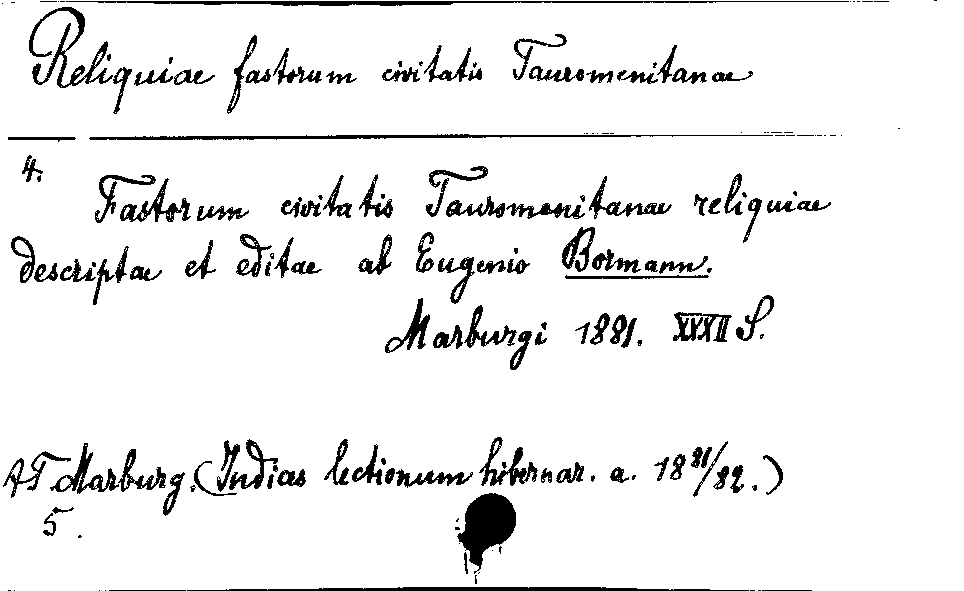 Reliquiae fastorum civitatis Tauromenitanae
4.
Fastorum civitatis Tauromenitanae reliquiae
descriptae et editae ab Eugenio Bormann.
Marburgi 1881. XXXII S.
AT Marburg. (Indices lectionum hibernar. a. 1881/82.)
5.